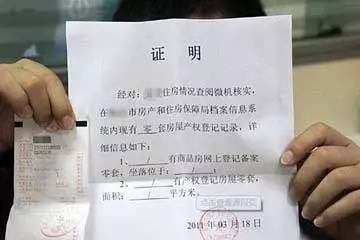 证 明
经对:住房情况查阅微机核实,
在市房产和住房保障局档案信息系
统内现有 零 套房屋产权登记记录,详
细信息如下:
1、 / 有商品房网上登记备案
零套,坐落位于: /
2、 / 有产权登记房屋零套,
面积: / 平方米。
2011 年 03 月 18 日